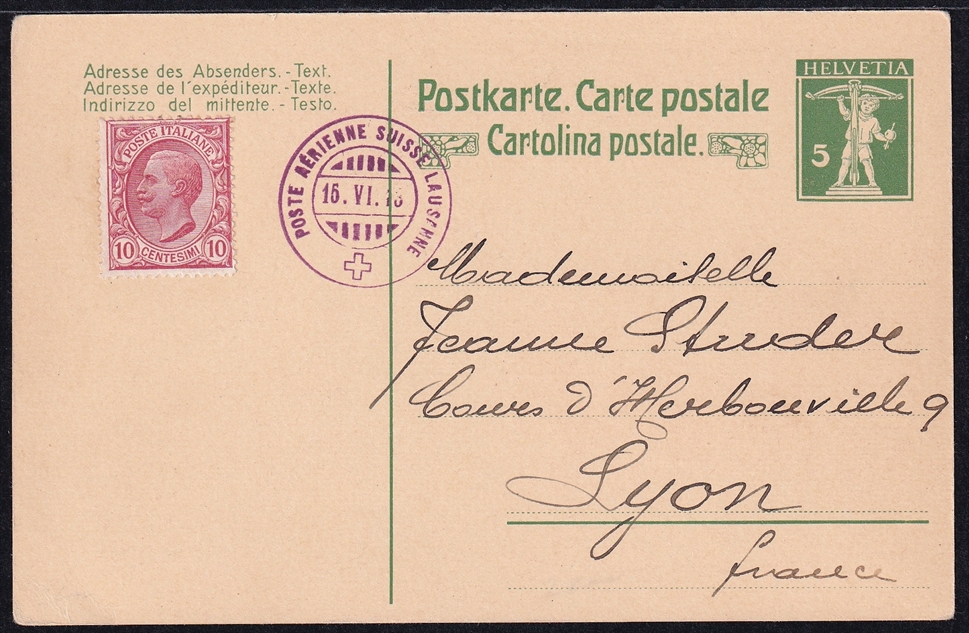 Adresse des Absenders.-Text.
Adresse de l'expéditeur.-Texte.
Indirizzo del mittente.-Testo.
Postkarte. Carte postale
Cartolina postale.
HELVETIA
5
POSTE ITALIANE
10 CENTESIMI 10
POSTE AÉRIENNE SUISSE LAUSANNE
15. VI. 13
Mademoiselle
Jeanne Studer
Cours d'Herbouville 9
Lyon
france